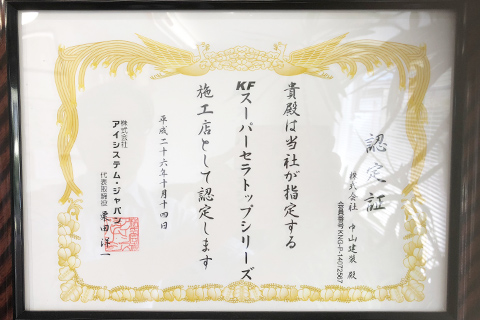 認定証
株式会社 中山建装 殿
会員番号KNG-P-14072567
貴殿は当社が指定する
KFスーパーセラトップシリーズ
施工店として認定します
平成二十六年十月十四日
株式会社
アイシステム・ジャパン
代表取締役 栗田 洋一